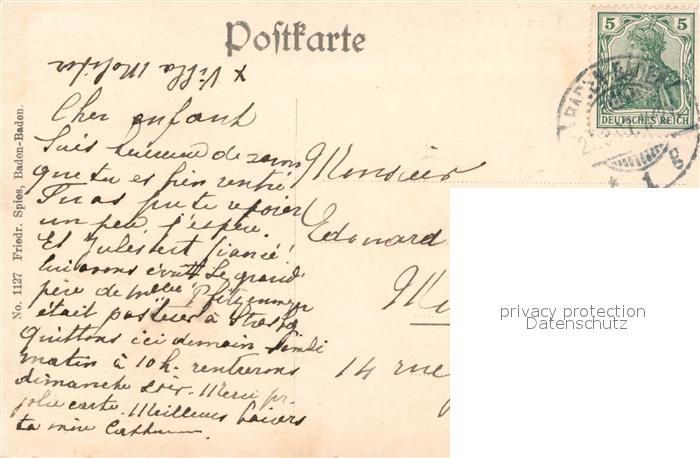 Postkarte
5 5
DEUTSCHES REICH
BADEN-BADEN
* 1 g
x Villa Molitor
No. 1127 Friedr. Spies, Baden-Baden.
Cher enfant
Suis heureuse de savoir
que tu es bien rentré
Tu as pu te reposer
un peu j'espère.
Et Jules est fiancé
lui avons écrit Le grand
père de Melle
était pasteur à Strasbg
Quittons ici demain lundi
matin à 10h. rentrerons
dimanche soir. Merci pr.
jolie carte. Meilleurs baisers
ta mère
Monsieur
Edouard
14 rue
privacy protection
Datenschutz